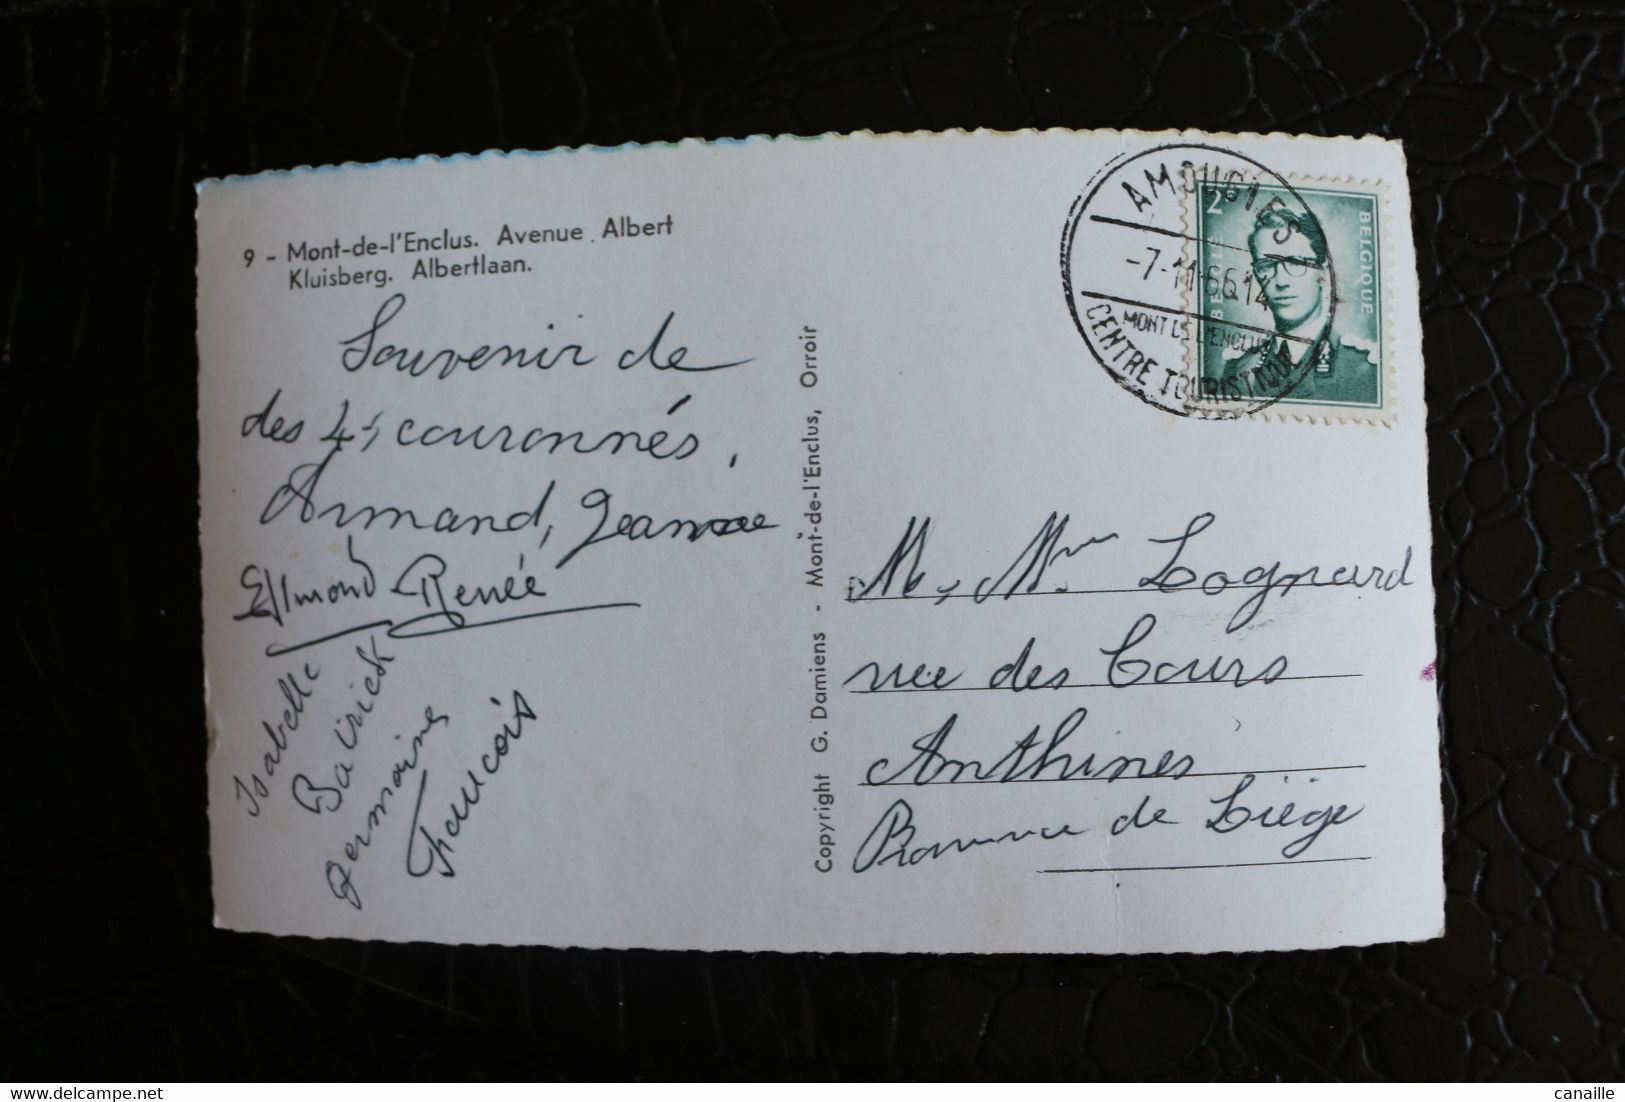 9 - Mont-de-l'Enclus. Avenue Albert
Kluisberg. Albertlaan.
Souvenir de
des 4 couronnés,
Armand, Jeanne
Edmond Renée
Isabelle
Patrick
Germaine
François
Copyright G. Damiens - Mont-de-l'Enclus, Orroir
AMOUGIES
-7-11-66 14
MONT DE L'ENCLUS
CENTRE TOURISTIQUE
2
BELGIQUE
M. Mme Lognard
rue des Cours
Anthines
Province de Liège
Website: www.delcampe.net
canaille